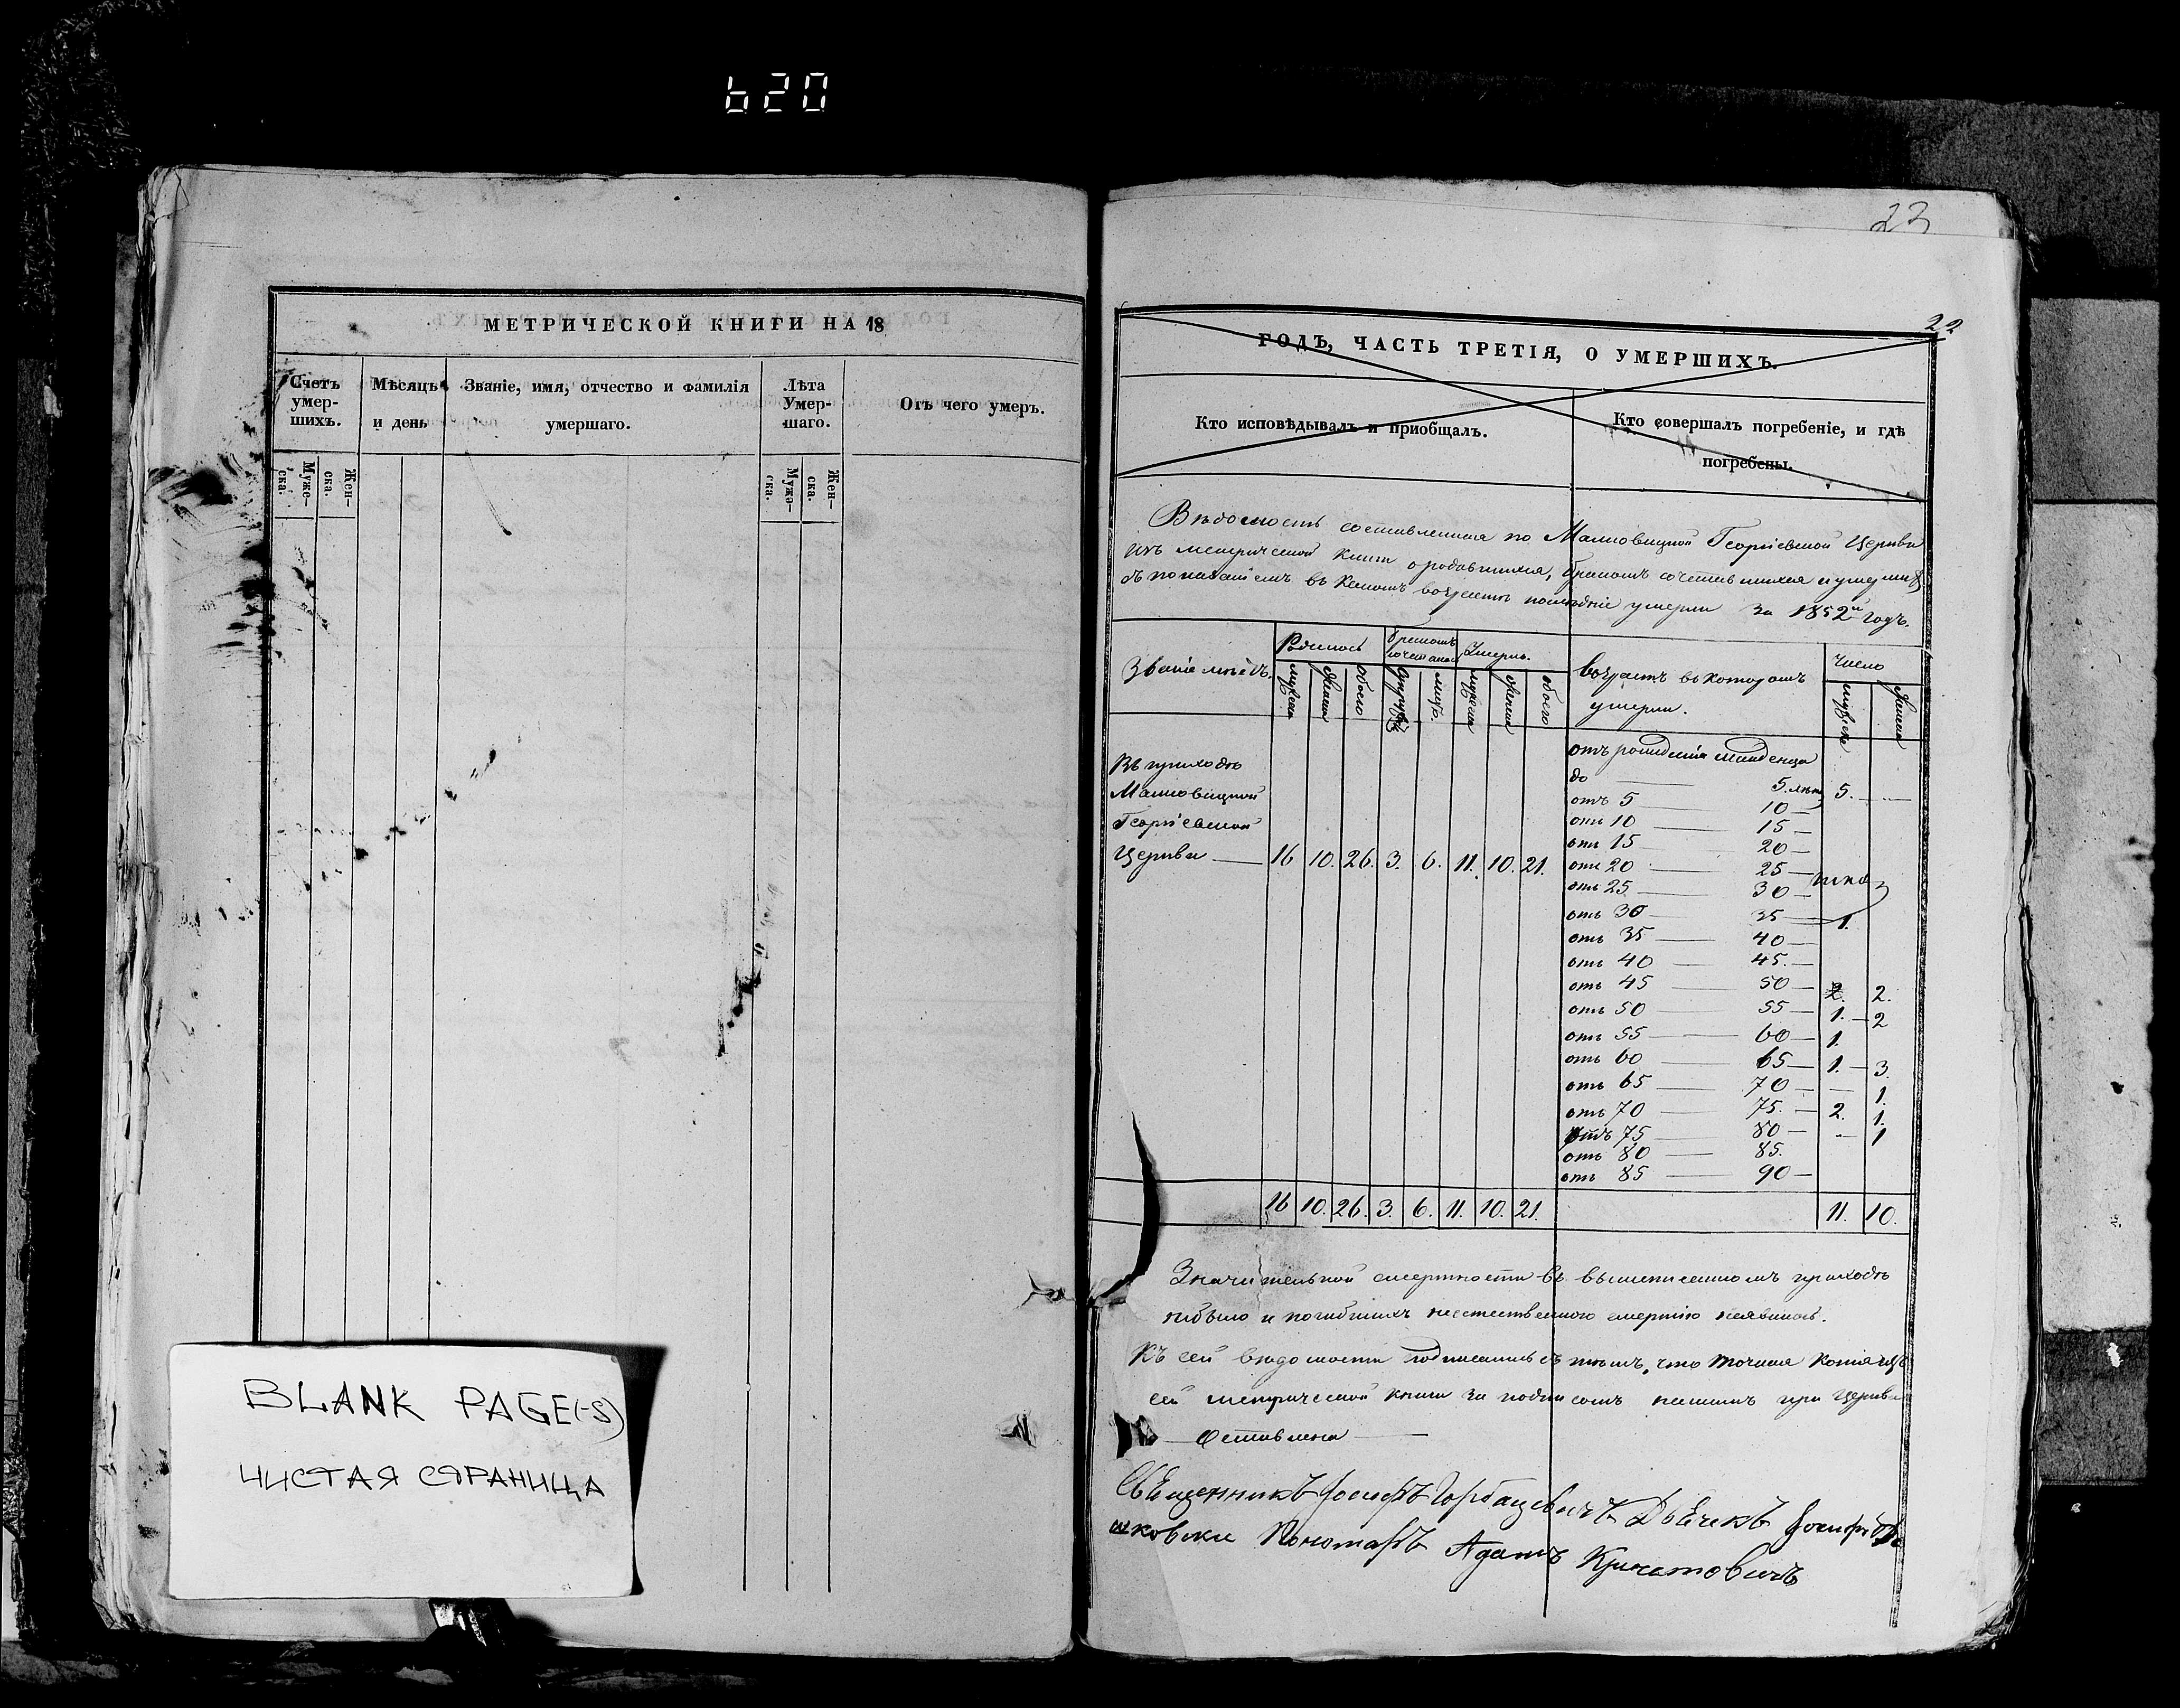 620
МЕТРИЧЕСКОЙ КНИГИ НА 18
Счетъ умер- шихъ.
Мѣсяцъ и день
Званіе, имя, отчество и фамилія умершаго.
Лѣта Умер- шаго.
Отъ чего умеръ.
Муже- ска.
Жен- ска.
Муже- ска.
Жен- ска.
BLANK PAGE(-S)
ЧИСТАЯ СТРАНИЦА
23
22
ГОДЪ, ЧАСТЬ ТРЕТІЯ, О УМЕРШИХЪ.
Кто исповѣдывалъ и пріобщалъ.
Кто совершалъ погребеніе, и гдѣ погребены.
Вѣдомость составленная по Георгіевской Церкви
изъ метрической книги о родившихся, бракомъ сочетавшихся и умершихъ
съ показаніемъ въ какомъ возрастѣ послѣдніе умерли за 1852й годъ.
Званіе мѣстъ.
Родилось
бракомъ сочеталось
Умерло.
возрастъ въ которомъ умерли.
Число
мужска
женска
обоего
лицъ.
мужска
женска
обоего
мужска
женска
Въ приходѣ
Георгіевской
Церкви — 16 10. 26. 3. 6. 11. 10. 21.
отъ рожденія младенца
до — 5. лѣтъ 5. —
отъ 5 — 10 —
отъ 10 — 15 —
отъ 15 — 20 —
отъ 20 — 25 —
отъ 25 — 30 —
отъ 30 — 35 — 1.
отъ 35 — 40 —
отъ 40 — 45. —
отъ 45 — 50 — 2.
отъ 50 — 55 — 1. — 2
отъ 55 — 60 — 1.
отъ 60 — 65 — 1. — 3.
отъ 65 — 70 — — 1.
отъ 70 — 75. — 2. 1.
отъ 75 — 80 — — 1
отъ 80 — 85.
отъ 85 — 90 —
16 10. 26. 3. 6. 11. 10. 21. 11. 10.
Значительной смертности въ вышеписанномъ приходѣ
небыло и погибшихъ неестественною смертію неявилось.
Къ сей вѣдомости подписались съ тѣмъ, что точная копія изъ
сей метрической книги за подписомъ нашимъ при Церкви
Оставлена
Священникъ Іосифъ Горбацевичъ Дьячекъ Іосифъ
Пономарь Адамъ